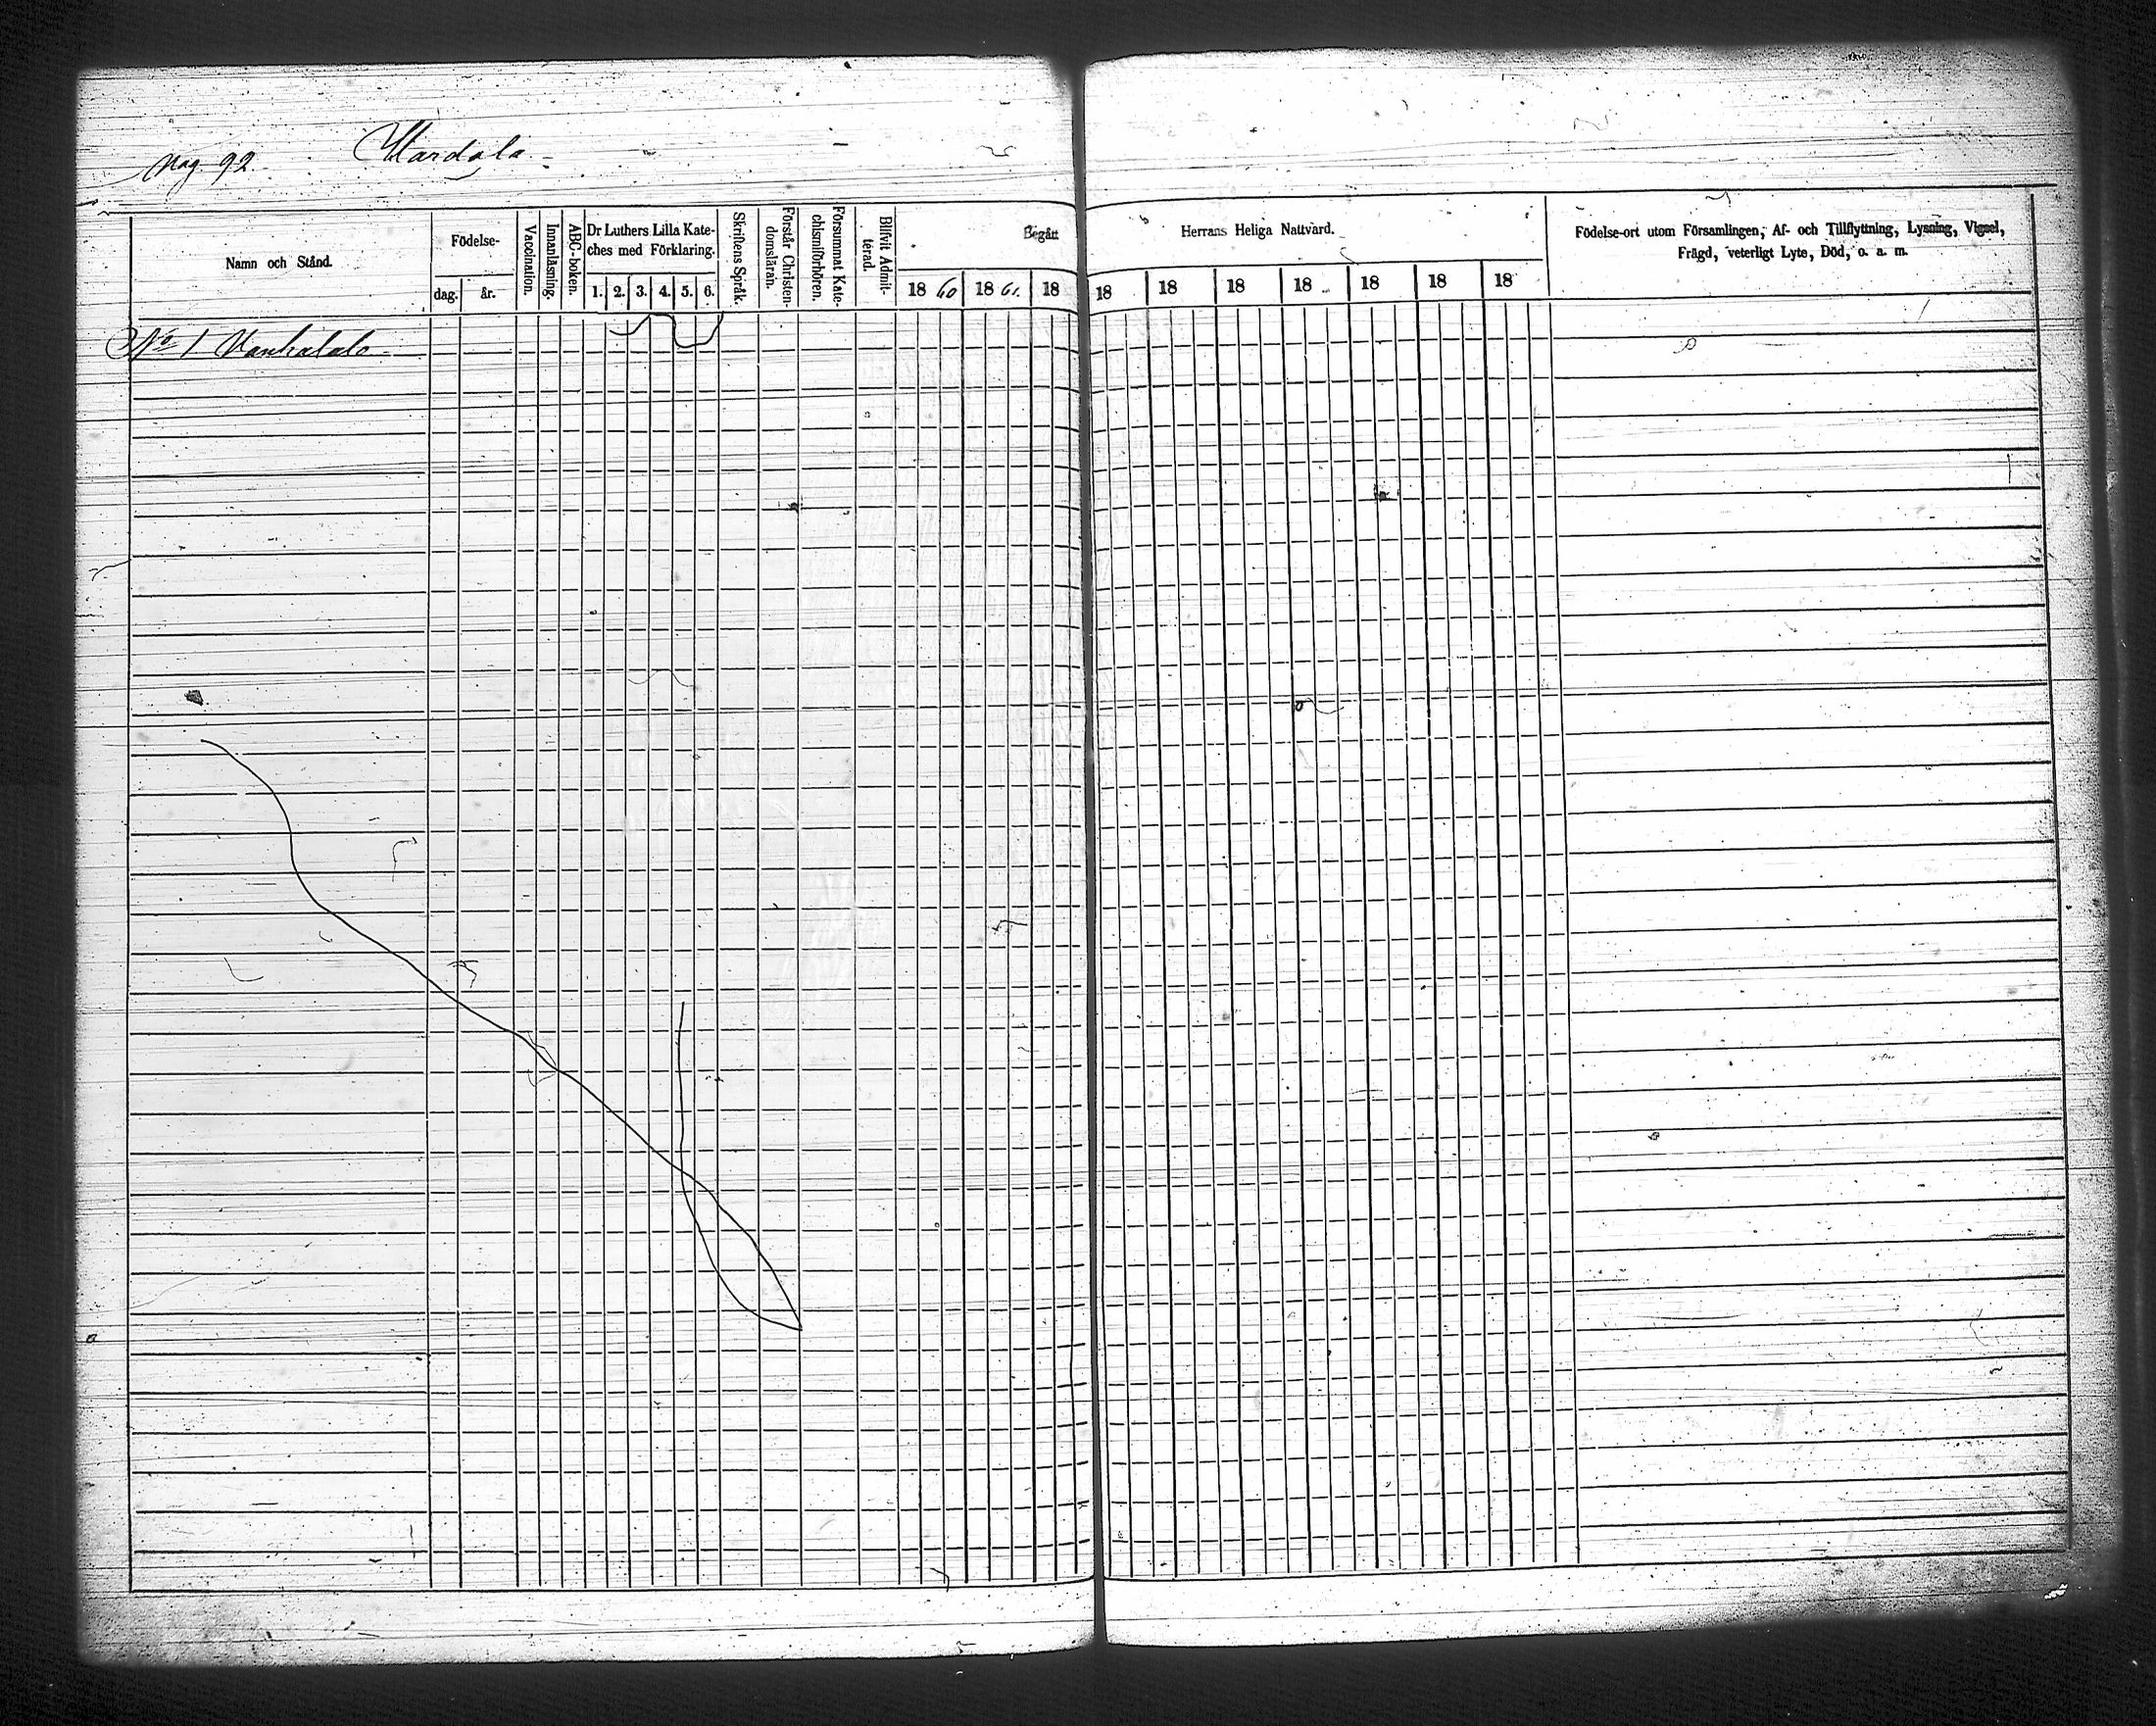 pag. 92. Mardala.
Namn och Stånd.
Födelse-
dag.
år.
Vaccination.
Innanläsning.
ABC-boken.
Dr Luthers Lilla Kate-
ches med Förklaring.
1. 2. 3. 4. 5. 6.
Skriftens Språk.
Förstår Christen-
domsläran.
Försummat Kate-
chismiförhören.
Blifvit Admit-
terad.
Begått Herrans Heliga Nattvard.
18 60 18 61. 18 18 18 18 18 18 18 18
Födelse-ort utom Församlingen, Af- och Tillflyttning, Lysning, Vigsel,
Frägd, veterligt Lyte, Död, o. a. m.
No 1 Vanhatalo